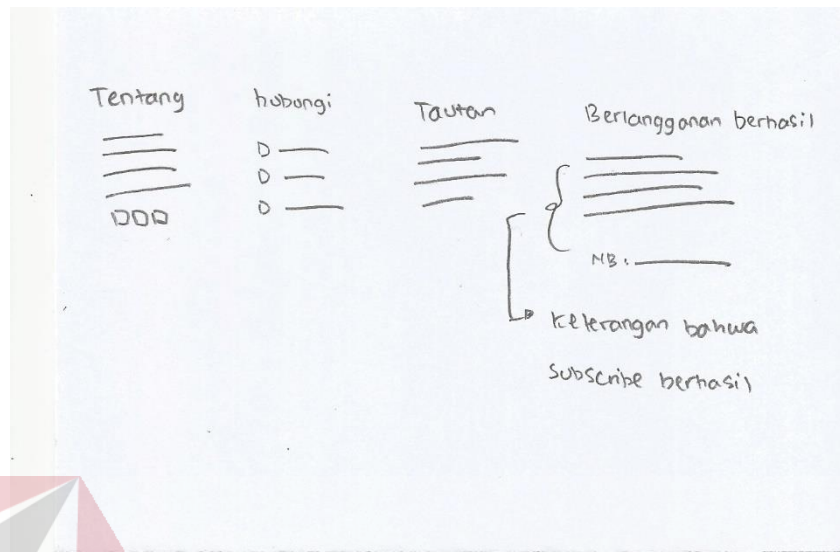 Tentang
hubungi
Tautan
Berlangganan berhasil
NB :
Keterangan bahwa
Subscribe berhasil